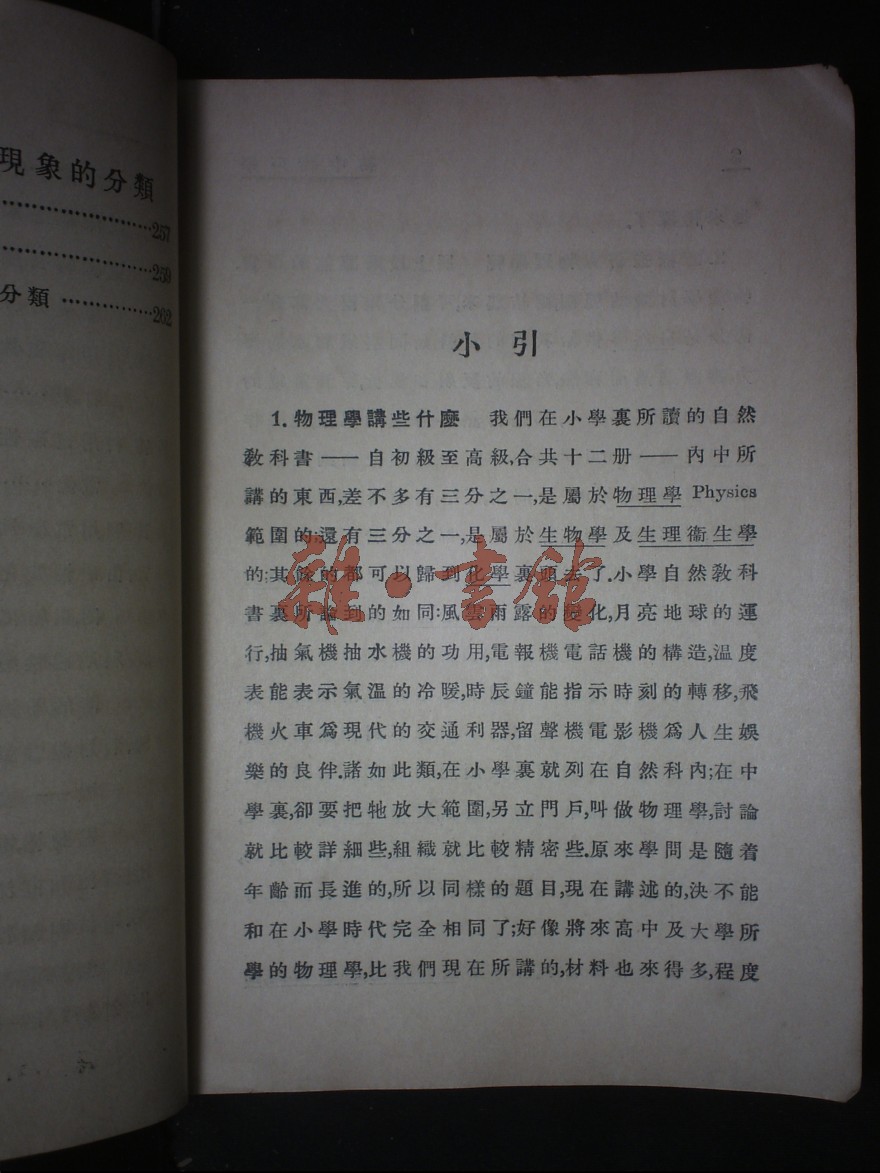 現象的分類
257
259
分類 262
小引
1. 物理學講些什麼 我們在小學裏所讀的自然
教科書 —— 自初級至高級,合共十二册 —— 內中所
講的東西,差不多有三分之一,是屬於物理學 Physics
範圍的;還有三分之一,是屬於生物學及生理衞生學
的;其餘的都可以歸到化學裏頭去了.小學自然教科
書裏所論到的如同:風雲雨露的變化,月亮地球的運
行,抽氣機抽水機的功用,電報機電話機的構造,温度
表能表示氣温的冷暖,時辰鐘能指示時刻的轉移,飛
機火車爲現代的交通利器,留聲機電影機爲人生娛
樂的良伴.諸如此類,在小學裏就列在自然科內;在中
學裏,卻要把牠放大範圍,另立門戶,叫做物理學,討論
就比較詳細些,組織就比較精密些.原來學問是隨着
年齡而長進的,所以同樣的題目,現在講述的,決不能
和在小學時代完全相同了;好像將來高中及大學所
學的物理學,比我們現在所講的,材料也來得多,程度
雜·書館